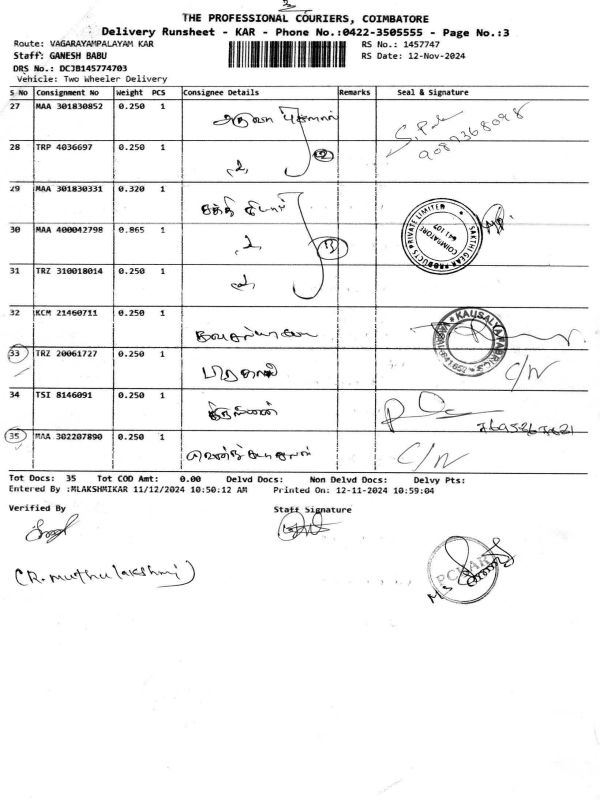 THE PROFESSIONAL COURIERS, COIMBATORE
Delivery Runsheet - KAR - Phone No.:0422-3505555 - Page No.:3
Route: VAGARAYAMPALAYAM KAR
RS No.: 1457747
Staff: GANESH BABU
RS Date: 12-Nov-2024
DRS No.: DCJB145774703
Vehicle: Two Wheeler Delivery
S No Consignment No Weight PCS Consignee Details Remarks Seal & Signature
27 MAA 301830852 0.250 1
9087368098
28 TRP 4036697 0.250 1
12
29 MAA 301830331 0.320 1 சக்தி கியர்
SAKTHI GEAR PRODUCTS PRIVATE LIMITED
COIMBATORE
641 107
30 MAA 400042798 0.865 1
31 TRZ 310018014 0.250 1
32 KCM 21460711 0.250 1
KAUSALYA FABRICS
33 TRZ 20061727 0.250 1 C/N
34 TSI 8146091 0.250 1
35 MAA 302207890 0.250 1 C/N
Tot Docs: 35 Tot COD Amt: 0.00 Delvd Docs: Non Delvd Docs: Delvy Pts:
Entered By :MLAKSHMIKAR 11/12/2024 10:50:12 AM Printed On: 12-11-2024 10:59:04
Verified By Staff Signature
(R. Muthulakshmi)